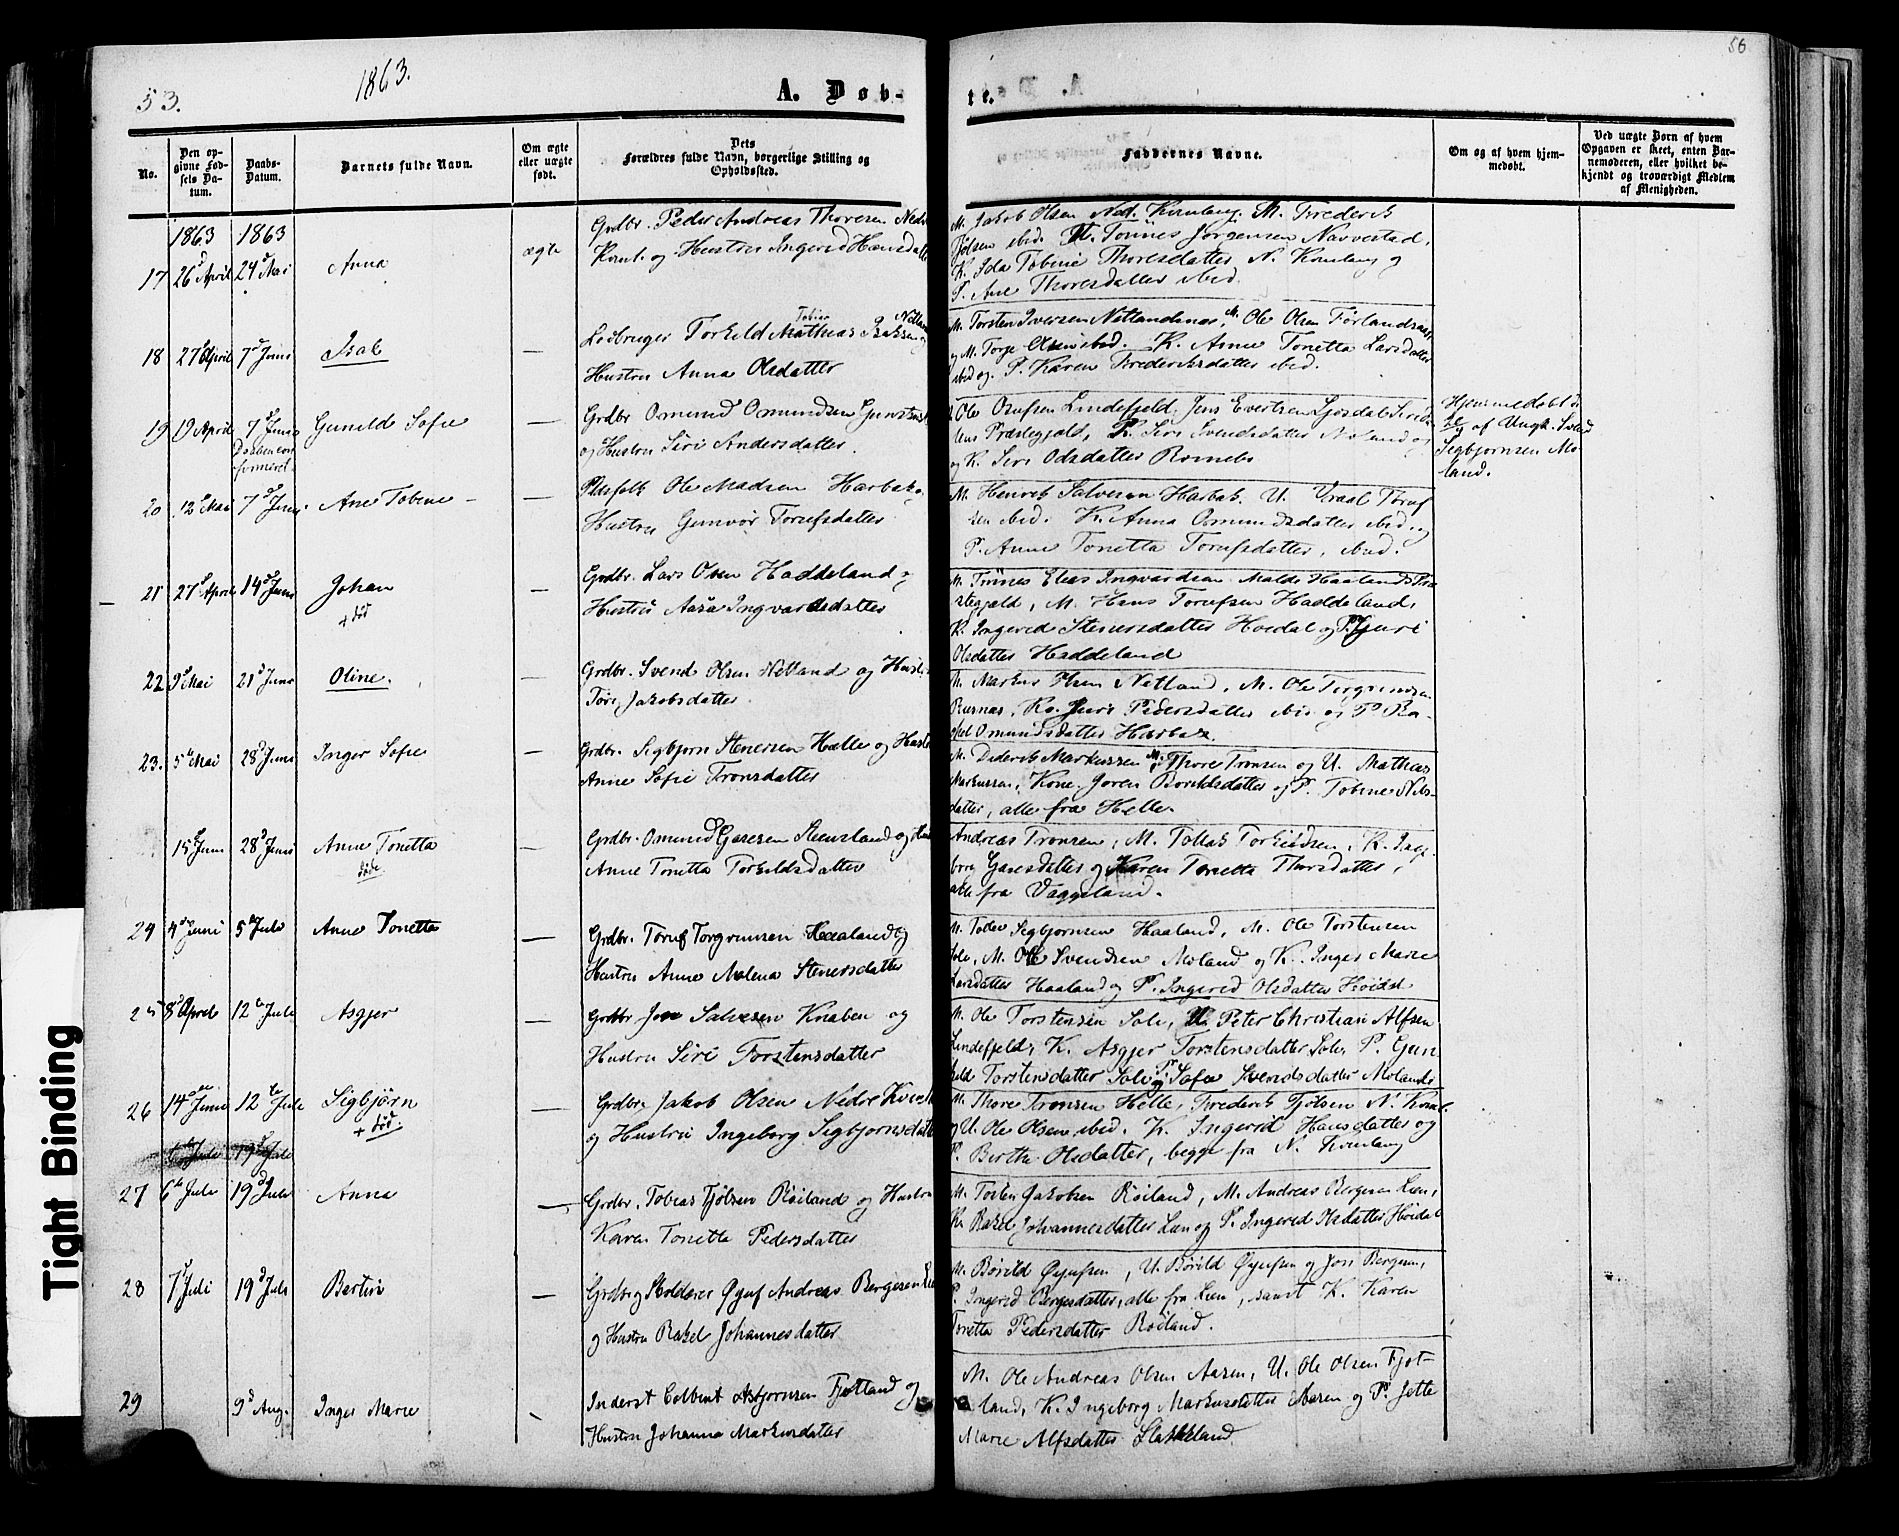 53.
1863.
A. Døb-
te.
56
No.
Den op-
givne Fød-
sels Da-
tum.
Daabs-
Datum.
Barnets fulde Navn.
Om ægte
eller uægte
født.
Dets
Forældres fulde Navn, borgerlige Stilling og
Opholdssted.
Faddernes Navne.
Om og af hvem hjem-
medøbt.
Ved uægte Børn af hvem
Opgaven er skeet, enten Bar-
nemoderen, eller hvilket be-
kjendt og troværdigt Medlem
af Menigheden.
1863 1863
17 26 April 24 Mai Anna ægte
Grdbr. Peder Andreas Thoresen Nedre
Kvnl. og Hustru Ingerid Hansdatter
M. Jakob Olsen Ned. Kvinlaug. M. Frederik
Fjølsen ibid. M. Tönnes Jørgensen Navvestad,
K. Ida Tobine Thoresdatter N. Kvinlaug og
P. Ane Thoresdatter ibid.
18 27 April 7 Juni Isak —
Tobias Netland
Ledbruger Torkild Mathias Isaksen og
Hustru Anna Olsdatter
M. Torsten Iversen Netlandsnes, M. Ole Olsen Førlandsaas,
og M. Torge Olsen ibid. K. Anne Tonetta Larsdatter
ibid og P. Karen Frederiksdatter ibid.
19 9 April 7 Juni Gunild Sofie —
Daaben con-
firmeret.
Grdbr Omund Omundsen
og Hustru Siri Andersdatter.
Ole Olufsen Lindefjeld, Jens Evertsen
Præstegjeld, K. Siri Svendsdatter Moland og
og K. Siri Olsdatter
Hjemmedøbt
af Ungk. Svend
Sigbjørnsen Mo-
land.
20 12 Mai 7 Juni. Ane Tobine —
Pladsfolk Ole Madsen Harbak og
Hustru Gunvør Torufsdatter
M. Henrik Salvesen Harbak. U. Toruf
sen ibid. K. Anna Omundsdatter ibid. og
P. Anne Tonetta Torufsdatter, ibid.
21 27 April 14 Juni Johan —
+ død
Grdbr. Lars Olsen Haddeland og
Hustru Aasa Ingvardsdatter
M. Tønnes Elias Ingvardsen
stegjæld, M. Hans Torufsen Haddeland,
K. Ingerid Stenersdatter Hvidal og P. Guri
Olsdatter Haddeland
22 9 Mai 21 Juni Oline. —
Grdbr. Svend Olsen Netland og Hustru
Tori Jakobsdatter
M. Markus Olsen Netland, M. Ole Torgrimsen
Rusnas, Ko. Guri Pedersdatter ibid og P. Ra-
kel Omundsdatter Harbak.
23. 5 Mai 28 Juni Inger Sofie —
Grdbr. Sigbjørn Stenersen Helle og Hustru
Anne Sofie Tronsdatter
M. Diderik Markussen M. Thore Tronsen og U. Mathias
Markussen, Kone Joren Bøvildsdatter og P. Tobine Nils-
datter, alle fra Helle
15 Juni 28 Juni Anne Tonetta —
død
Grdbr. Omund Gjæresen Steensland og
Anne Tonetta Torkildsdatter
Andreas Tronsen, M. Tollak Torkildsen, K. Inge-
borg Gjæresdatter og Karen Tonetta Thorsdatter,
alle fra Vaggeland.
24 4 Juni 5 Juli Anne Tonetta —
Grdbr. Toruf Torgrimsen Haaland og
Hustru Anne Malena Stenersdatter
M. Tolev Sigbjørnsen Haaland, M. Ole Torstensen
Solv, M. Ole Svendsen Moland og K. Inger Marie
Larsdatter Haaland og P. Ingerid Olsdatter Hvidal
25 8 April 12 Juli Asgjer —
Grdbr Jon Salvesen Knaben og
Hustru Siri Torstensdatter
M. Ole Torstensen Solv, U. Peter Christian Alfsen
Lindefjeld, K. Asgjer Torstensdatter Solv, P. Gun
hild Torstensdatter Solv og P. Sofie Svendsdatter Moland
26 14 Juni 12 Juli Sigbjørn —
+ død.
Grdbr. Jakob Olsen Nedre
og Hustru Ingeborg Sigbjørnsdatter
M. Thore Tronsen Helle, Frederik Fjølsen N. Kvinl.
og U. Ole Olsen ibid. K. Ingerid Hansdatter og
P. Berthe Olsdatter, begge fra N. Kvinlaug
27 6 Juli 19 Juli Anna —
Grdbr. Tobias Fjølsen Røiland og Hustru
Karen Tonette Pedersdatter
M. Torkel Jakobsen Røiland, M. Andreas Bergesen Lien,
K. Rakel Johannesdatter Lien og P. Ingerid Olsdatter Hvidal
28 7 Juli 19 Juli Bertin —
Grdbr og Skolelærer Øyuf Andreas Bergesen Lien
og Hustru Rakel Johannesdatter
M. Børild Øyufsen, U. Børild Øyufsen og Jon Bergesen,
P. Ingerid Bergesdatter, alle fra Lien, samt K. Karen
Tonetta Pedersdatter Røiland.
29 9 Aug. Inger Marie
Inderst Colbent Asbjørnsen Fjotland og
Hustru Johanna Markusdatter
M. Ole Andreas Olsen Aasen, U. Ole Olsen Fjot-
land, K. Ingeborg Markusdatter Aasen og P. Jette
Marie Alfsdatter Slakkeland
Tight Binding